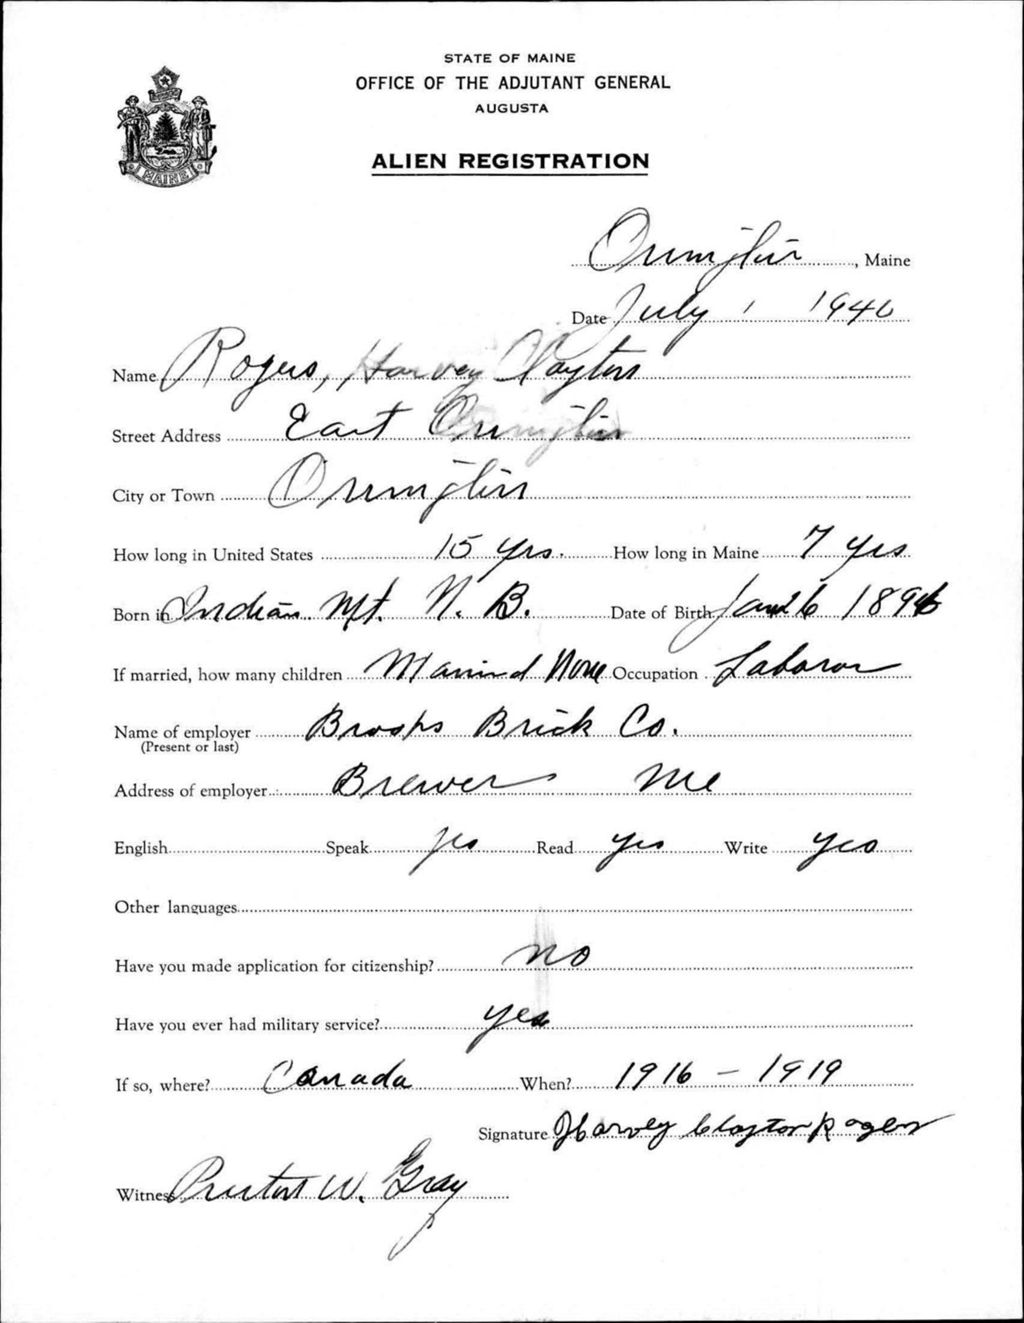 STATE OF MAINE
OFFICE OF THE ADJUTANT GENERAL
AUGUSTA
ALIEN REGISTRATION
MAINE
Orrington, Maine
Date July 1 1940
Name Rogers, Harvey Clayton
Street Address East Orrington
City or Town Orrington
How long in United States 15 yrs. How long in Maine 7 yrs
Born in Indian Mt. N. B. Date of Birth Jan 26 1896
If married, how many children Married None Occupation Laborer
Name of employer Brooks Brick Co.
(Present or last)
Address of employer Brewer Me
English Speak yes Read yes Write yes
Other languages
Have you made application for citizenship? no
Have you ever had military service? yes
If so, where? Canada When? 1916 – 1919
Signature Harvey Clayton Rogers
Witness W. Gray